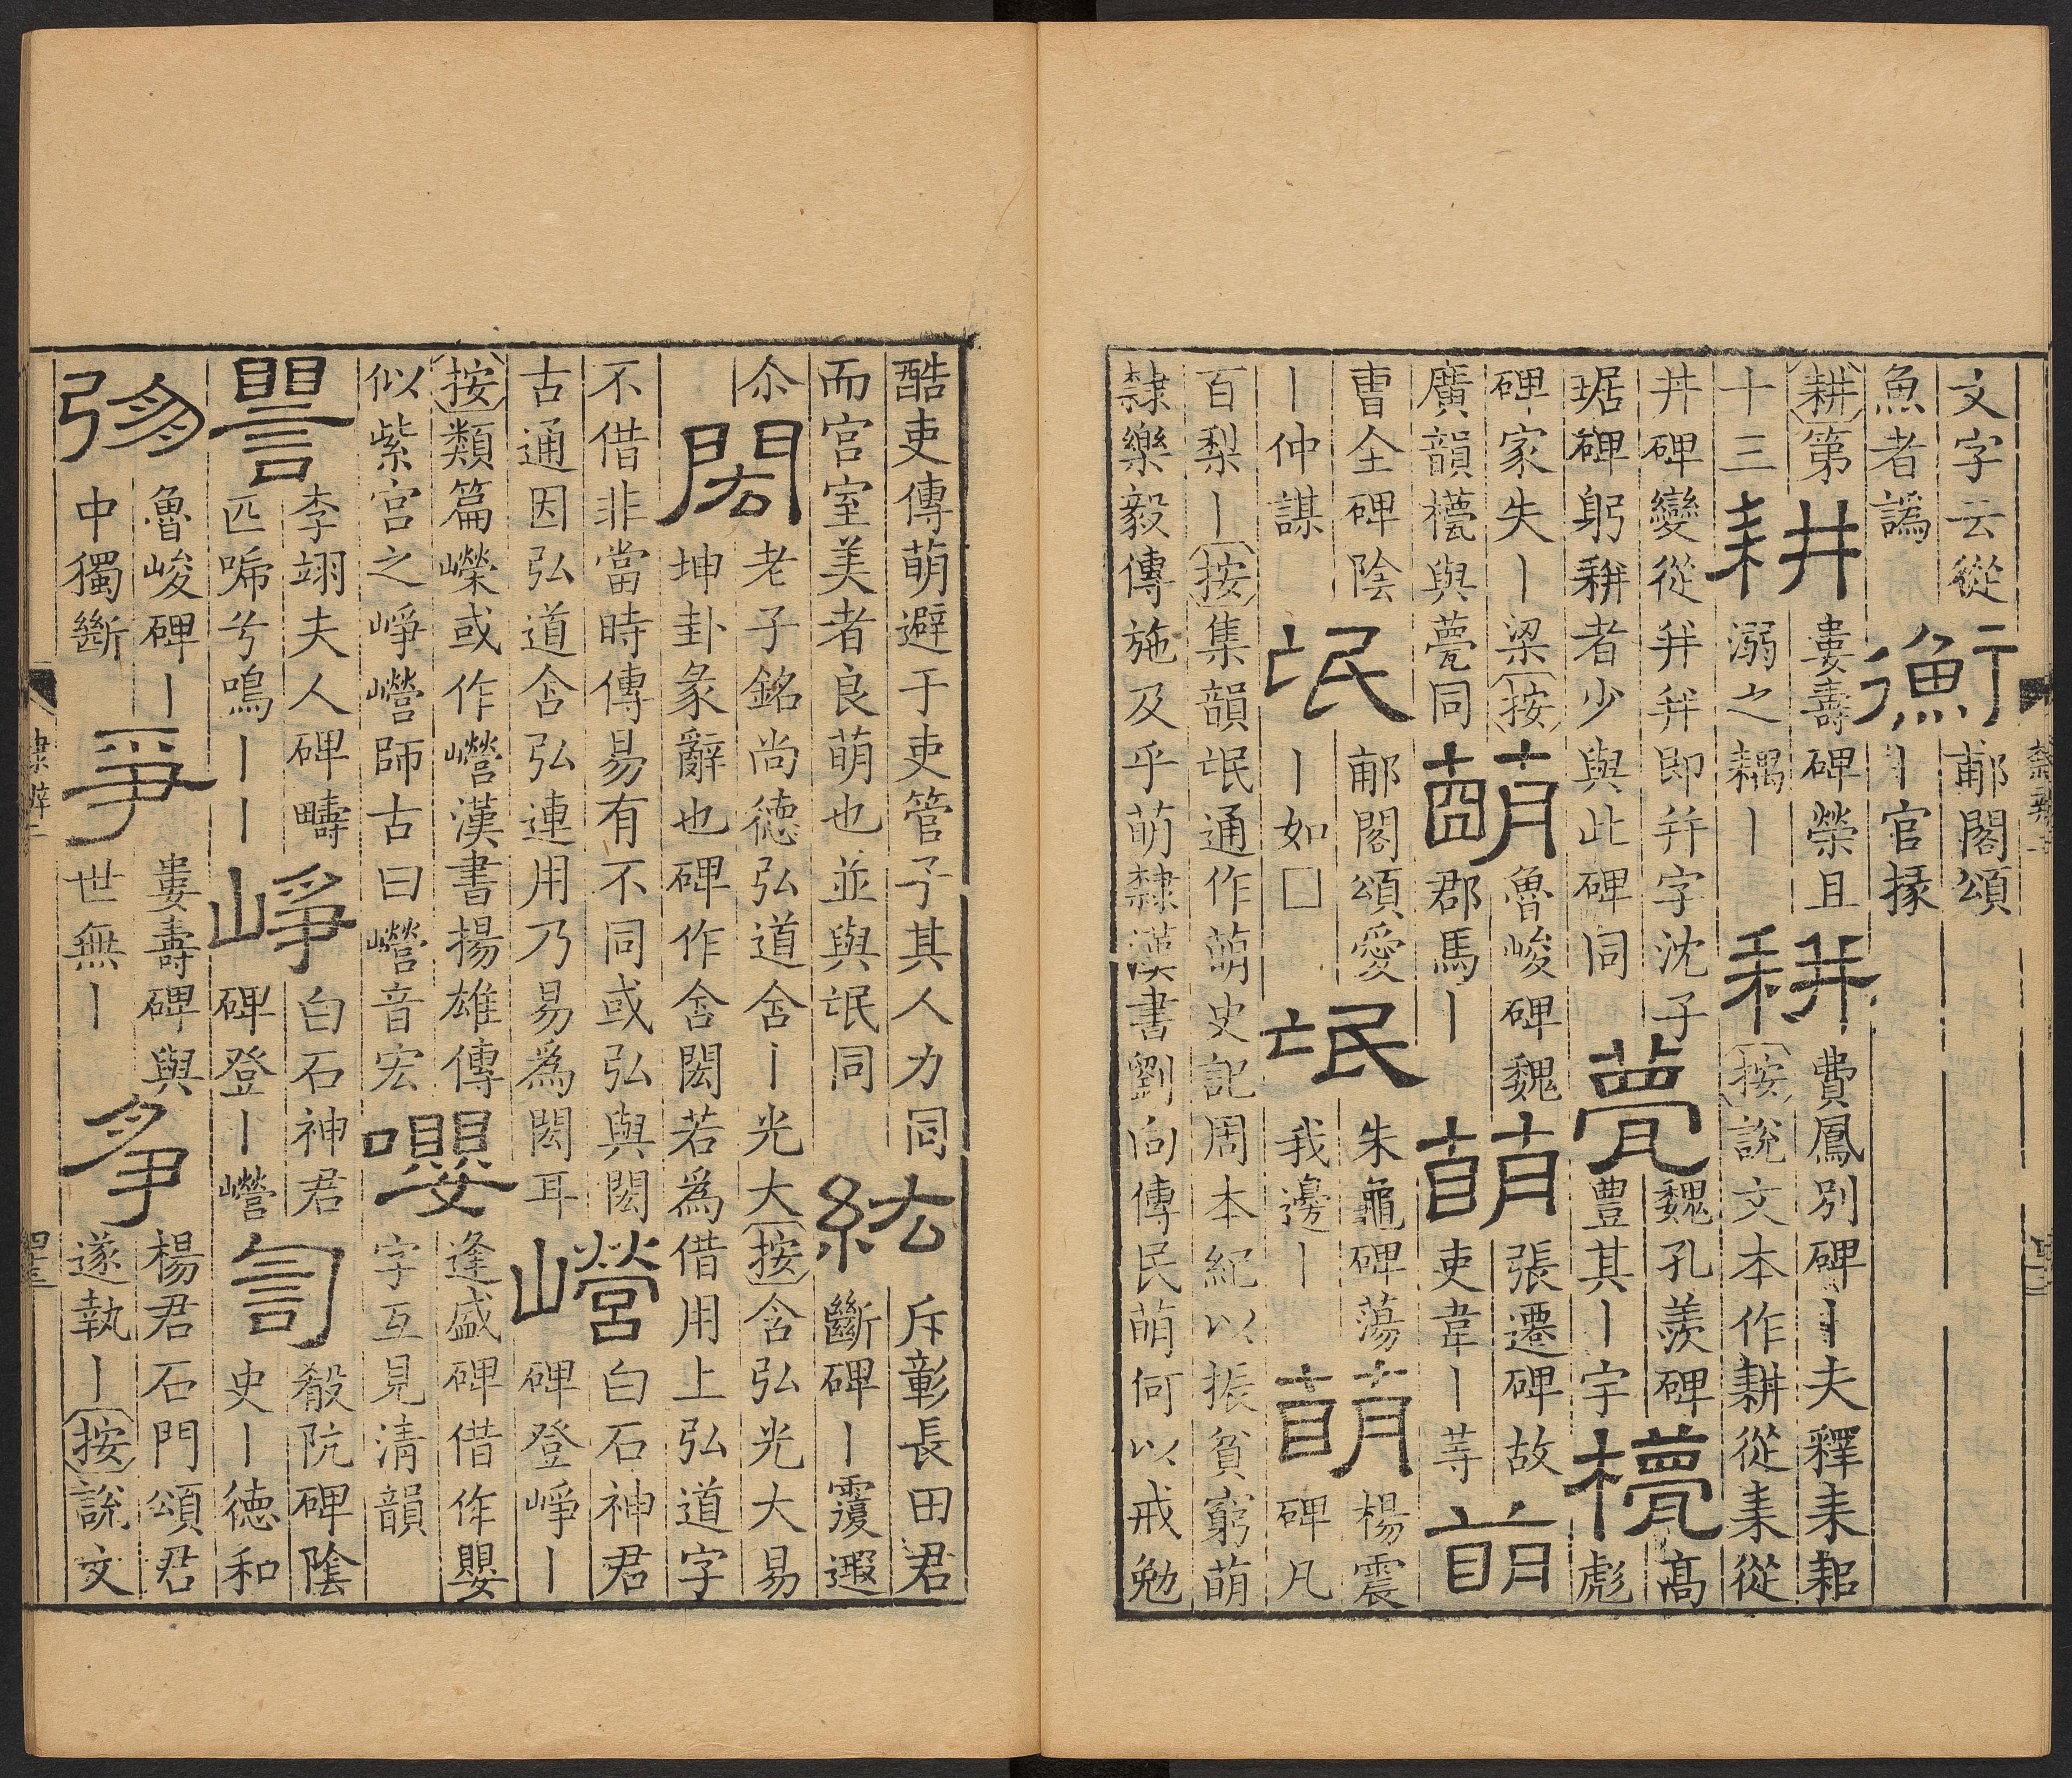 文字云從
魚者譌
衡
郙閣頌
丨官掾
耕第
十三
耕
婁壽碑榮且
溺之耦丨
耕
費鳳別碑丨夫釋耒耜
按說文本作耕從耒從
井碑變從幷幷即幷字沈子
琚碑躬耕者少與此碑同
甍
魏孔羨碑
豊其丨宇
㯴
高
彪
碑家失丨梁按
廣韻㯴與甍同
萌
魯峻碑魏
郡馬丨
萌
張遷碑故
吏韋丨䓁
萌
曹全碑陰
丨仲謀
氓
郙閣頌愛
丨如□
氓
朱龜碑蕩
我邊丨
萌
楊震
碑凡
百梨丨按集韻氓通作萌史記周本紀以振貧窮萌
隸樂毅傳施及乎萌隸漢書劉向傳民萌何以戒勉
酷吏傳萌避于吏管子其人力同
而宮室美者良萌也並與氓同
紘
斥彰長田君
斷碑丨覆遐
尒
閎
老子銘尚德弘道含丨光大按含弘光大易
坤卦彖辭也碑作含閎若爲借用上弘道字
不借非當時傳易有不同或弘與閎
古通因弘道含弘連用乃易爲閎耳
巆
白石神君
碑登崢丨
按類篇嶸或作巆漢書揚雄傳
似紫宮之崢巆師古曰巆音宏
嚶
逢盛碑借作嬰
字互見淸韻
譻
李翊夫人碑疇
匹唏兮鳴丨丨
崢
白石神君
碑登丨巆
訇
殽阬碑陰
史丨德和
弥
魯峻碑丨
中獨斷
爭
婁壽碑與
世無丨
爭
楊君石門頌君
遂執丨按說文